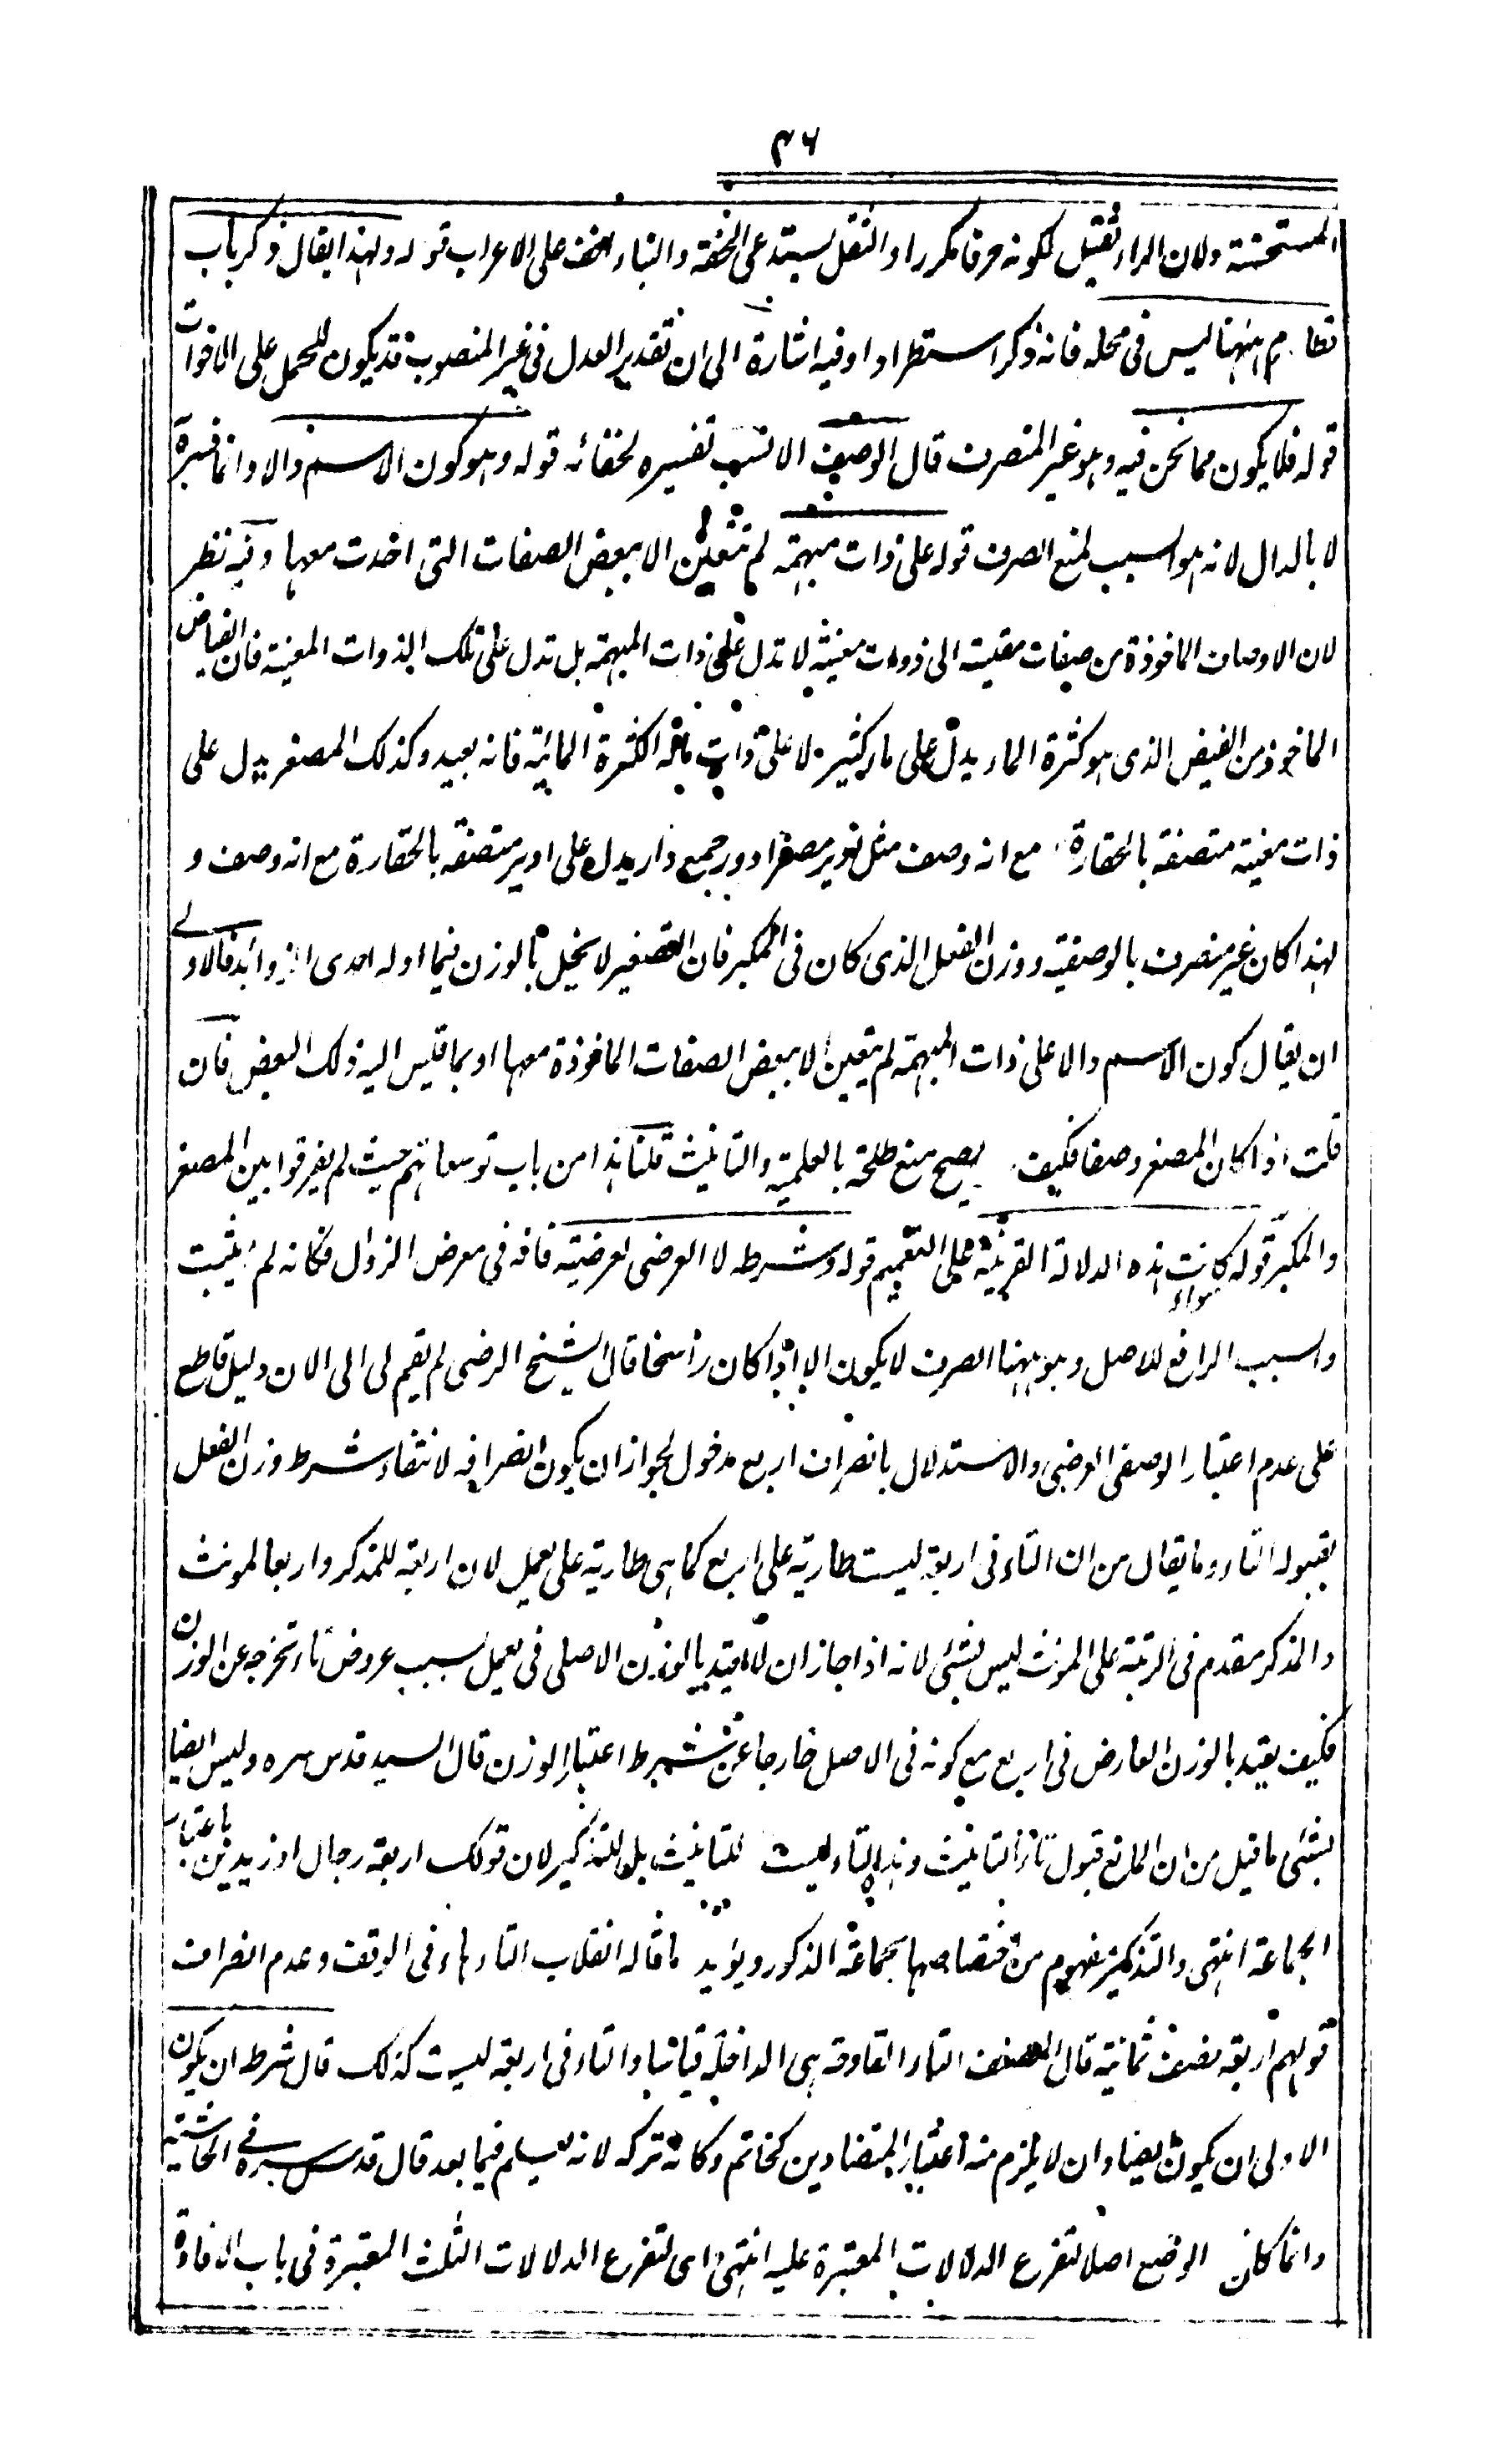 ۴۶
المستحسنة ولان الراء ثقيل لكونه حرفا مكررا والثقل يستدعى الخفة والبناء اخف على الاعراب قوله ولهذا يقال ذكر باب
قطام ههنا ليس فى محله فانه ذكر استطرادا وفيه اشارة الى ان تقدير العدل فى غير المنصوب قد يكون للحمل على الاخوات
قوله فلا يكون مما نحن فيه وهو غير المنصرف قال الوصف الانسب تفسيره لخفائه قوله وهو كون الاسم دالا وانما فسره
لا بالدال لانه هو السبب لمنع الصرف قوله على ذات مبهمة لم تتعين الا ببعض الصفات التى اخذت معها وفيه نظر
لان الاوصاف الماخوذة من صفات مقيسة الى ذوات معينة لا تدل على ذات المبهمة بل تدل على تلك الذوات المعينة فان الفياض
الماخوذ من الفيض الذى هو كثرة الماء يدل على ماء كثير لا على ذات ماله الكثرة المائية فانه بعيد وكذلك المصغر يدل على
ذات معينة متصفة بالحقارة مع انه وصف مثل ادير مصغر ادور جمع دار يدل على ادير متصفة بالحقارة مع انه وصف و
لهذا كان غير منصرف بالوصفية ووزن الفعل الذى كان فى المكبر فان التصغير لا يخل بالوزن فيما اوله احدى الزوائد فالاولے
ان يقال كون الاسم دالا على ذات المبهمة لم يتعين الا ببعض الصفات الماخوذة معها او بما قيس اليه ذلك البعض فان
قلت اذا كان المصغر وصفا فكيف يصح منع طلحة بالعلمية والتانيث قلنا هذا من باب توسعاتهم حيث لم يفرقوا بين المصغر
والمكبر قوله سواء كانت هذه الدلالة القرينة على التعميم قوله وشرطه لا العرضى لعرضيته فانه فى معرض الزوال فكانه لم يثبت
والسبب الرافع للاصل وهو ههنا الصرف لا يكون الا اذا كان راسخا قال الشيخ الرضى لم يقم لى الى الان دليل قاطع
على عدم اعتبار الوصفى العرضى والاستدلال بانصراف اربع مدخول لجواز ان يكون انصرافه لانتفاء شرط وزن الفعل
بقبوله التاء وما يقال من ان التاء فى اربعة ليست طارية على اربع كما هى طارية على يعمل لان اربعة للمذكر واربعا لمونث
والمذكر مقدم فى الرتبة على المونث ليس بشئ لانه اذا جاز ان لا يقيد بالوزن الاصلى فى يعمل بسبب عروض تاء تخرجه عن الوزن
فكيف يقيد بالوزن العارض فى اربع مع كونه فى الاصل خارجا عن شرط اعتبار الوزن قال السيد قدس سره وليس ايضا
بشئ ما قيل من ان المانع قبول تاء التانيث وهذه التاء ليست للتانيث بل للتذكير لان قولك اربعة رجال او زيدين باعتبار
الجماعة انتهى والتذكير مفهوم من اختصاصها بجماعة الذكور ويؤيد ما قاله انقلاب التاء هاء فى الوقف وعدم انصراف
قولهم اربعة نصف ثمانية قال المصنف التاء القادحة هى الداخلة قياسا والتاء فى اربعة ليست كذلك قال شرط ان يكون
الاولى ان يكون ايضا وان لا يلزم منه اعتبار المتضادين كخاتم وكانه تركه لانه يعلم فيما بعد قال قدس سره فے الحاشية
وانما كان الوضع اصلا لتفرع الدلالات المعتبرة عليه انتهى اى لتفرع الدلالات الثلث المعتبرة فى باب الافادة